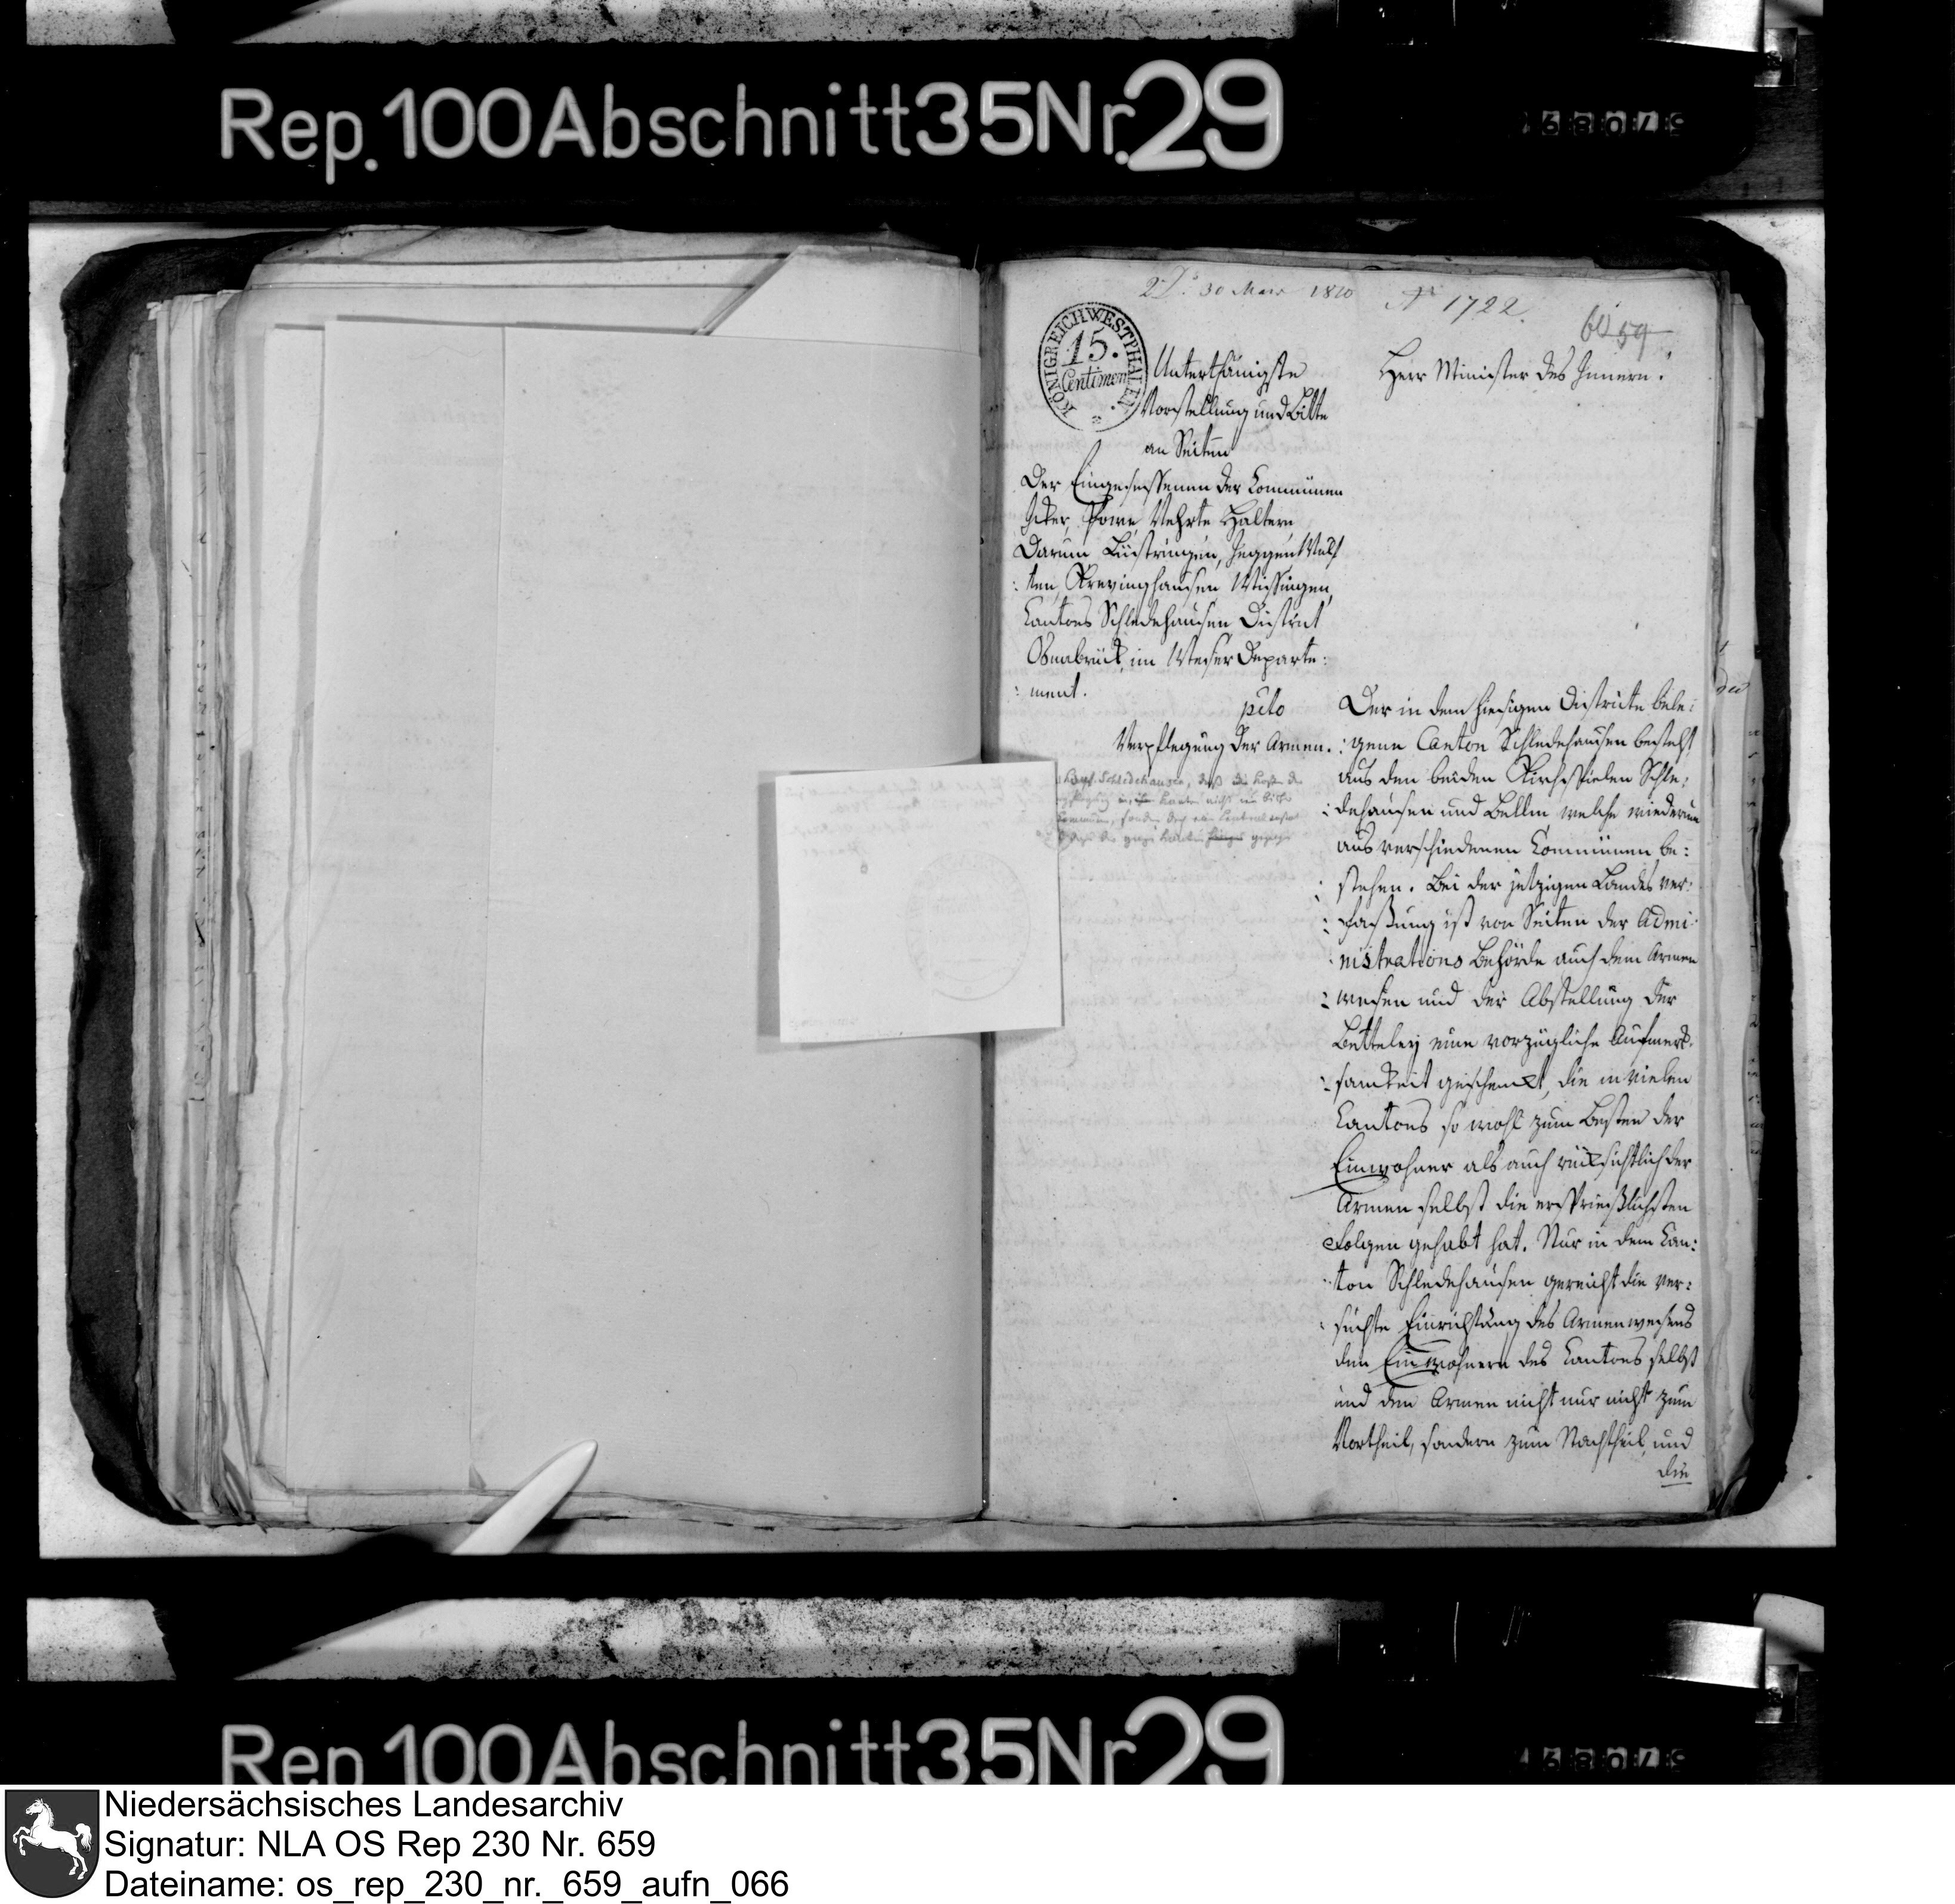 Rep. 100 Abschnitt 35 Nr. 29
30 Mars 1810
No 1722.
60 59
KÖNIGREICH WESTPHALEN.
15.
Centimen
Unterthänigste
Vorstellung und Bitte
an Seiten
Der Eingesessenen der Communen
Icker, Powe, Vehrte Haltern
Darum Lüstringen, Jeggen Wulf
:ten, Krevinghausen Wissingen,
Cantons Schledehausen District
Osnabrück, im Weser Departe:
:ment.
pcto
Verpflegung der Armen.
Schledehausen, daß die Kosten der
Herr Minister des Innern!
Der in dem hiesigen Districte bele:
:gene Canton Schledehausen besteht
aus den beiden Kirchspielen Schle:
:dehausen und Bellm welche wiederum
aus verschiedenen Communen be:
:stehen. Bei der jetzigen Landes ver:
:faßung ist von Seiten der Admi:
:nistrations Behörde auch dem Armen
:wesen und der Abstellung der
Betteley eine vorzügliche Aufmerk:
:samkeit geschenkt, die in vielen
Cantons so wohl zum Besten der
Einwohner als auch rücksichtlich der
Armen selbst die ersprießlichsten
Folgen gehabt hat. Nur in dem Can:
:ton Schledehausen gereicht die ver:
:suchte Einrichtung des Armenwesens
den Einwohnern des Cantons selbst
und den Armen nicht nur nicht zum
Vortheil, sondern zum Nachtheil, und
die
Rep. 100 Abschnitt 35 Nr. 29
Niedersächsisches Landesarchiv
Signatur: NLA OS Rep 230 Nr. 659
Dateiname: os_rep_230_nr._659_aufn_066